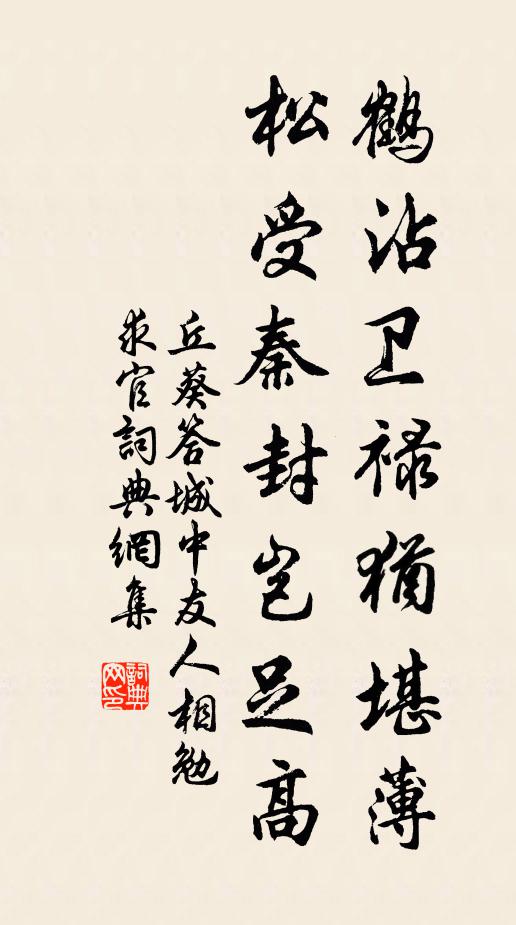 鹤沾卫禄猶堪薄
松受秦封岂足高
丘葵答城中友人相勉
求官詞典網集
詞典網印